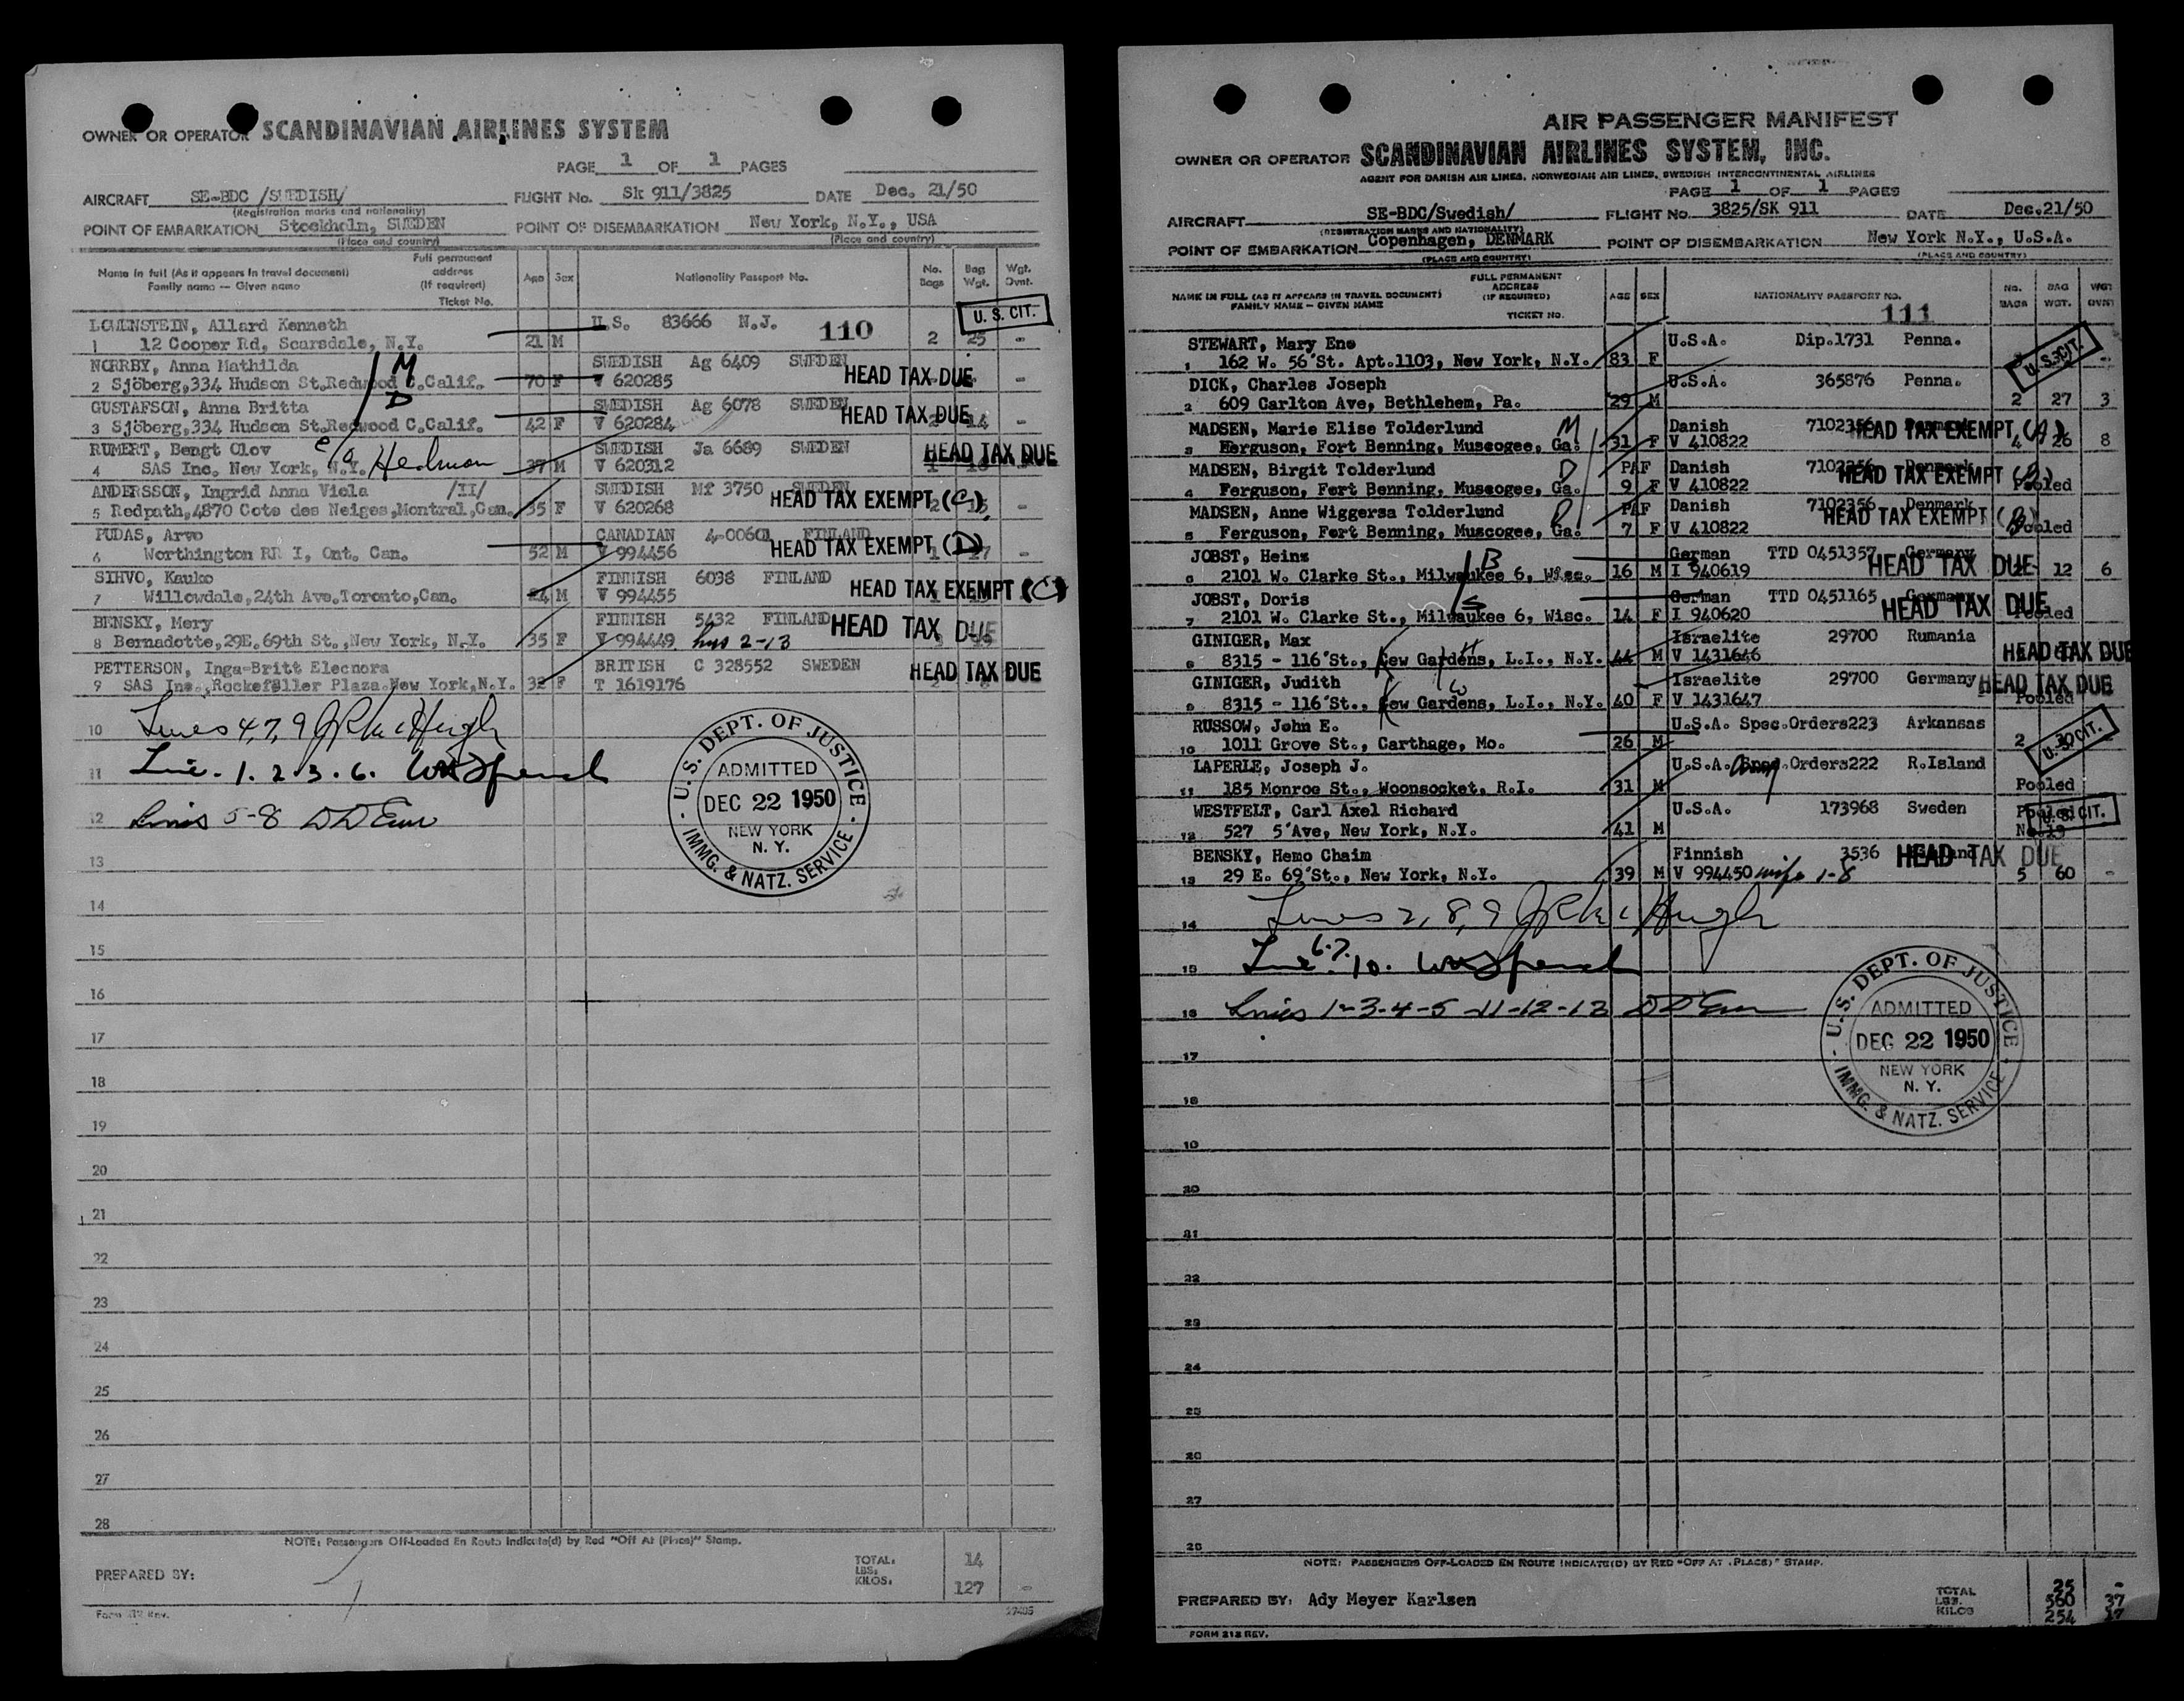 OWNER OR OPERATOR SCANDINAVIAN AIRLINES SYSTEM
PAGE 1 OF 1 PAGES
AIRCRAFT SE-BDC /SWEDISH/ FLIGHT No. SK 911/3825 DATE Dec. 21/50
(Registration marks and nationality)
POINT OF EMBARKATION Stockholm, SWEDEN POINT OF DISEMBARKATION New York, N.Y., USA
(Place and country) (Place and country)
Name in full (As it appears in travel document) Family name — Given name Full permanent address (If required) Ticket No. Age Sex Nationality Passport No. No. Bags Bag Wgt. Wgt. Ovnt.
LOWENSTEIN, Allard Kenneth U.S. 83666 N.J. 110 U. S. CIT.
1 12 Cooper Rd, Scarsdale, N.Y. 21 M 2 25 -
NORRBY, Anna Mathilda M SWEDISH Ag 6409 SWEDEN
2 Sjöberg,334 Hudson St.Redwood C.Calif. 70 F V 620285 HEAD TAX DUE -
GUSTAFSON, Anna Britta D SWEDISH Ag 6078 SWEDEN
3 Sjöberg,334 Hudson St.Redwood C.Calif. 42 F V 620284 HEAD TAX DUE 2 14 -
RUMERT, Bengt Olov c/o Hedman SWEDISH Ja 6689 SWEDEN
4 SAS Inc. New York, N.Y. 37 M V 620312 HEAD TAX DUE
ANDERSSON, Ingrid Anna Viola /II/ SWEDISH Mf 3750 SWEDEN
5 Redpath,4870 Cote des Neiges,Montral,Can. 35 F V 620268 HEAD TAX EXEMPT (C) 2 15 -
PUDAS, Arvo CANADIAN 4-00601 FINLAND
6 Worthington RR I, Ont. Can. 52 M V 994456 HEAD TAX EXEMPT (D) 1 17 -
SIHVO, Kauko FINNISH 6038 FINLAND
7 Willowdale,24th Ave.Toronto,Can. 24 M V 994455 HEAD TAX EXEMPT (C)
BENSKY, Mery FINNISH 5432 FINLAND
8 Bernadotte,29E.69th St.,New York, N.Y. 35 F V 994449 hus 2-13 HEAD TAX DUE
PETTERSON, Inga-Britt Eleonora BRITISH C 328552 SWEDEN
9 SAS Inc.,Rockefeller Plaza.New York,N.Y. 32 F T 1619176 HEAD TAX DUE
10 Lines 4,7,9
11 Lin. 1. 2. 3. 6.
12 Lines 5-8
U.S. DEPT. OF JUSTICE
ADMITTED
DEC 22 1950
NEW YORK
N. Y.
IMMG. & NATZ. SERVICE
13
14
15
16
17
18
19
20
21
22
23
24
25
26
27
28
NOTE: Passengers Off-Loaded En Route Indicate(d) by Red "Off At (Place)" Stamp.
PREPARED BY: TOTAL: 14
LBS:
KILOS: 127 -
Form 212 Rev.
AIR PASSENGER MANIFEST
OWNER OR OPERATOR SCANDINAVIAN AIRLINES SYSTEM, INC.
AGENT FOR DANISH AIR LINES, NORWEGIAN AIR LINES, SWEDISH INTERCONTINENTAL AIRLINES
PAGE 1 OF 1 PAGES
AIRCRAFT SE-BDC/Swedish/ FLIGHT No. 3825/SK 911 DATE Dec.21/50
(REGISTRATION MARKS AND NATIONALITY)
POINT OF EMBARKATION Copenhagen, DENMARK POINT OF DISEMBARKATION New York N.Y., U.S.A.
(PLACE AND COUNTRY) (PLACE AND COUNTRY)
NAME IN FULL (AS IT APPEARS IN TRAVEL DOCUMENT) FAMILY NAME – GIVEN NAME FULL PERMANENT ADDRESS (IF REQUIRED) TICKET NO. AGE SEX NATIONALITY PASSPORT NO. NO. BAGS BAG WGT. WGT OVNT
111
STEWART, Mary Eno U.S.A. Dip.1731 Penna.
1 162 W. 56'St. Apt.1103, New York, N.Y. 83 F U. S. CIT. -
DICK, Charles Joseph U.S.A. 365876 Penna.
2 609 Carlton Ave, Bethlehem, Pa. 29 M 2 27 3
MADSEN, Marie Elise Tolderlund M Danish 7102356 HEAD TAX EXEMPT (A)
3 Ferguson, Fort Benning, Muscogee, Ga. 31 F V 410822 4 26 8
MADSEN, Birgit Tolderlund D PAF Danish 7102356 Denmark HEAD TAX EXEMPT (B)
4 Ferguson, Fort Benning, Muscogee, Ga. 9 F V 410822 Pooled
MADSEN, Anne Wiggersa Tolderlund D PAF Danish 7102356 Denmark HEAD TAX EXEMPT (B)
5 Ferguson, Fort Benning, Muscogee, Ga. 7 F V 410822 Pooled
JOBST, Heinz B German TTD 0451357 Germany HEAD TAX DUE
6 2101 W. Clarke St., Milwaukee 6, Wisc. 16 M I 940619 12 6
JOBST, Doris S German TTD 0451165 Germany HEAD TAX DUE
7 2101 W. Clarke St., Milwaukee 6, Wisc. 14 F I 940620 Pooled
GINIGER, Max H Israelite 29700 Rumania
8 8315 - 116'St., Kew Gardens, L.I., N.Y. 44 M V 1431646 HEAD TAX DUE
GINIGER, Judith W Israelite 29700 Germany HEAD TAX DUE
9 8315 - 116'St., Kew Gardens, L.I., N.Y. 40 F V 1431647 Pooled
RUSSOW, John E. U.S.A. Spec.Orders223 Arkansas
10 1011 Grove St., Carthage, Mo. 26 M 2 30 U. S. CIT.
LAPERLE, Joseph J. U.S.A. Spec.Orders222 R.Island
11 185 Monroe St., Woonsocket, R.I. 31 M Pooled
WESTFELT, Carl Axel Richard U.S.A. 173968 Sweden Pooled U. S. CIT.
12 527 5'Ave, New York, N.Y. 41 M No.13
BENSKY, Hemo Chaim Finnish 3536 HEAD TAX DUE
13 29 E. 69'St., New York, N.Y. 39 M V 994450 wife 1-8 5 60 -
14 Lines 2, 8, 9
15 Lin. 6.7. 10.
16 Lines 1-3-4-5-11-12-13
U.S. DEPT. OF JUSTICE
ADMITTED
DEC 22 1950
NEW YORK
N. Y.
IMMG. & NATZ. SERVICE
17
18
19
20
21
22
23
24
25
26
27
28
NOTE: PASSENGERS OFF-LOADED EN ROUTE INDICATE(D) BY RED "OFF AT (PLACE)" STAMP.
PREPARED BY: Ady Meyer Karlsen TOTAL 25 -
LBS. 560 37
KILOS 254 17
FORM 212 REV.